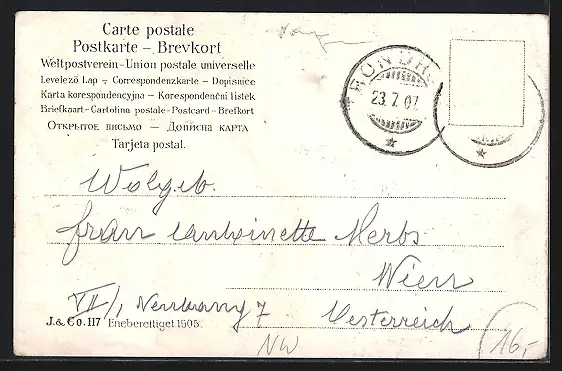 Carte postale
Postkarte – Brevkort
Weltpostverein – Union postale universelle
Levelező Lap – Correspondenzkarte – Dopisnice
Karta korespondencyjna – Korespondenční listek
Briefkaart – Cartolina postale – Postcard – Brefkort
Открытое письмо — Дописна карта
Tarjeta postal.
23.7.07
Wolgeb.
frau Antoinette Merbs
Wien
VII/1, Neubaug 7
Oesterreich
J. & Co. 117 Eneberettiget 1905.
NW
16,-